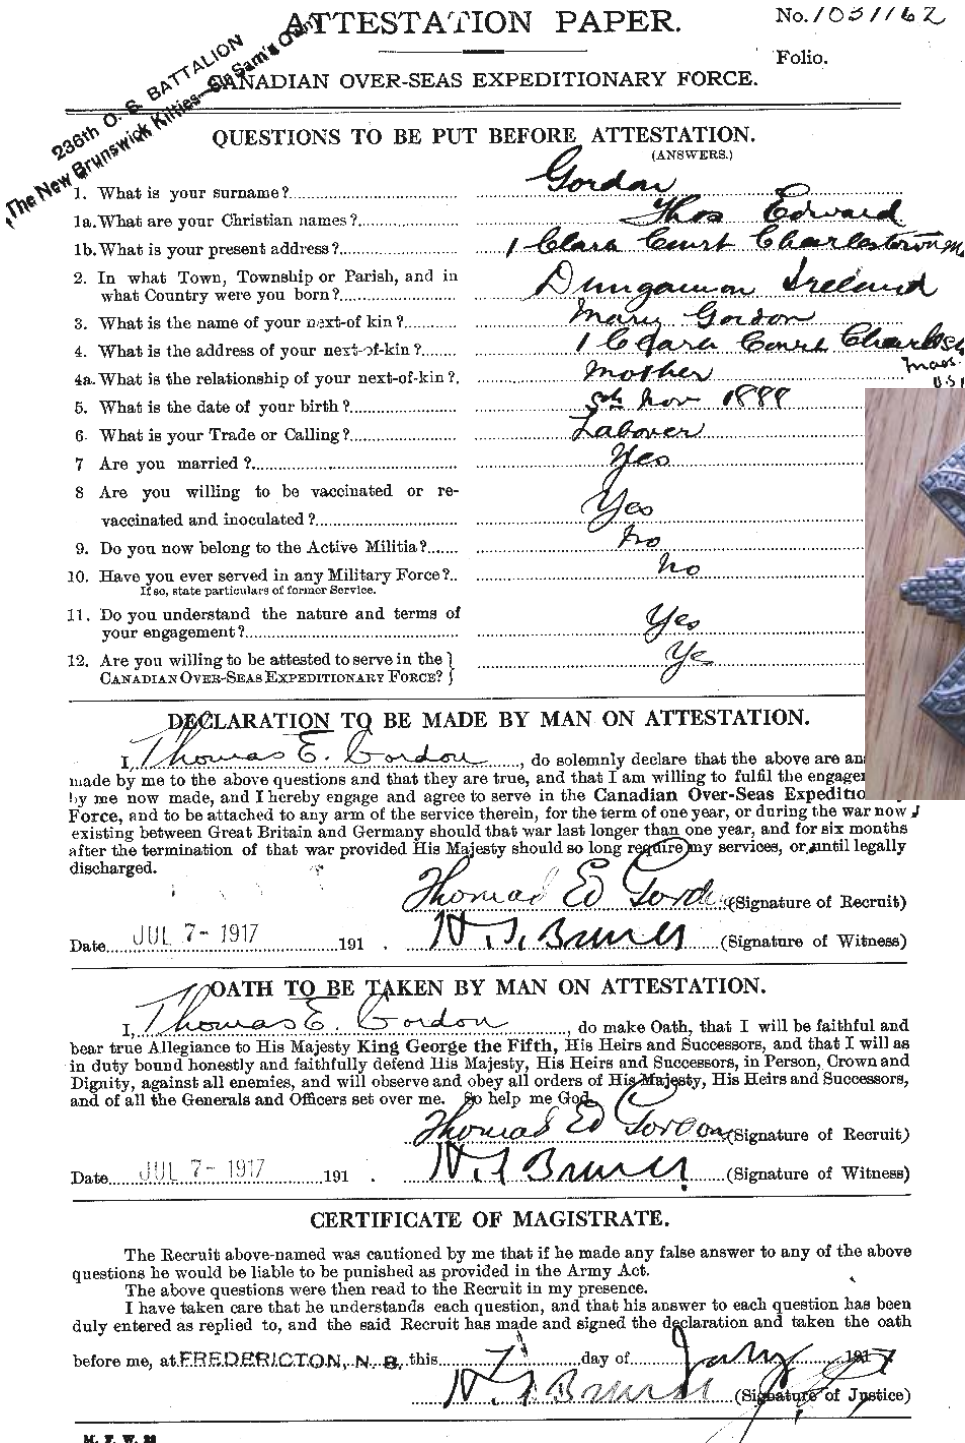 ATTESTATION PAPER.
No. 1031162
Folio.
236th O. S. BATTALION
The New Brunswick Kilties—Sir Sam's Own
CANADIAN OVER-SEAS EXPEDITIONARY FORCE.
QUESTIONS TO BE PUT BEFORE ATTESTATION.
(ANSWERS.)
1. What is your surname? Gordon
1a. What are your Christian names? Thos Edward
1b. What is your present address? 1 Clara Court Charlestown
2. In what Town, Township or Parish, and in
what Country were you born? Dungannon Ireland
3. What is the name of your next-of kin? Mary Gordon
4. What is the address of your next-of-kin? 1 Clara Court
Mass.
4a. What is the relationship of your next-of-kin? Mother
5. What is the date of your birth? 5th Nov 1888
6. What is your Trade or Calling? Laborer
7 Are you married? Yes
8 Are you willing to be vaccinated or re-
vaccinated and inoculated? Yes
9. Do you now belong to the Active Militia? No
10. Have you ever served in any Military Force? No
If so, state particulars of former Service.
11. Do you understand the nature and terms of
your engagement? Yes
12. Are you willing to be attested to serve in the
CANADIAN OVER-SEAS EXPEDITIONARY FORCE? Yes
DECLARATION TO BE MADE BY MAN ON ATTESTATION.
I, Thomas E. Gordon, do solemnly declare that the above are
made by me to the above questions and that they are true, and that I am willing to fulfil the
by me now made, and I hereby engage and agree to serve in the Canadian Over-Seas
Force, and to be attached to any arm of the service therein, for the term of one year, or during the war now
existing between Great Britain and Germany should that war last longer than one year, and for six months
after the termination of that war provided His Majesty should so long require my services, or until legally
discharged.
Thomas Ed Gordon (Signature of Recruit)
Date JUL 7- 1917 191 . (Signature of Witness)
OATH TO BE TAKEN BY MAN ON ATTESTATION.
I, Thomas E. Gordon, do make Oath, that I will be faithful and
bear true Allegiance to His Majesty King George the Fifth, His Heirs and Successors, and that I will as
in duty bound honestly and faithfully defend His Majesty, His Heirs and Successors, in Person, Crown and
Dignity, against all enemies, and will observe and obey all orders of His Majesty, His Heirs and Successors,
and of all the Generals and Officers set over me. So help me God.
Thomas Ed Gordon (Signature of Recruit)
Date JUL 7- 1917 191 . (Signature of Witness)
CERTIFICATE OF MAGISTRATE.
The Recruit above-named was cautioned by me that if he made any false answer to any of the above
questions he would be liable to be punished as provided in the Army Act.
The above questions were then read to the Recruit in my presence.
I have taken care that he understands each question, and that his answer to each question has been
duly entered as replied to, and the said Recruit has made and signed the declaration and taken the oath
before me, at FREDERICTON, N. B. this 7 day of July 1917
(Signature of Justice)
M. F. W. 23